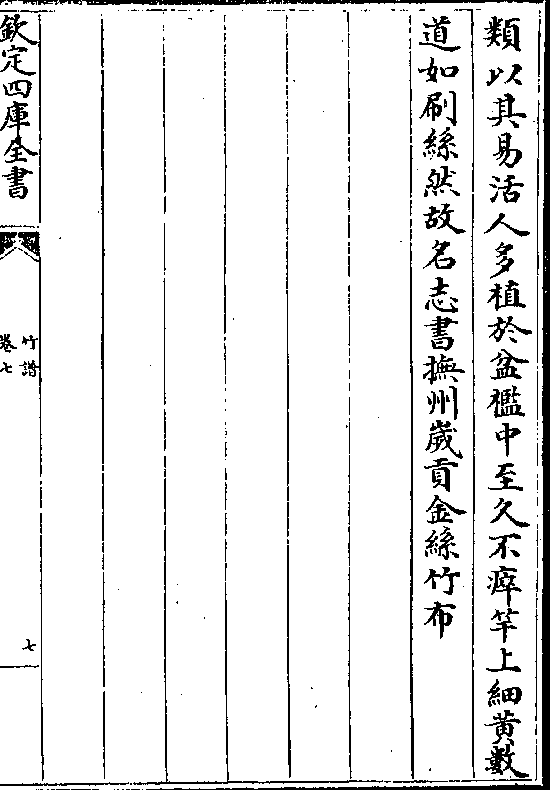 類以其易活人多植於盆檻中至久不瘁竿上細黄數
道如刷絲然故名志書撫州歲貢金絲竹布
欽定四庫全書
竹譜
卷七
七